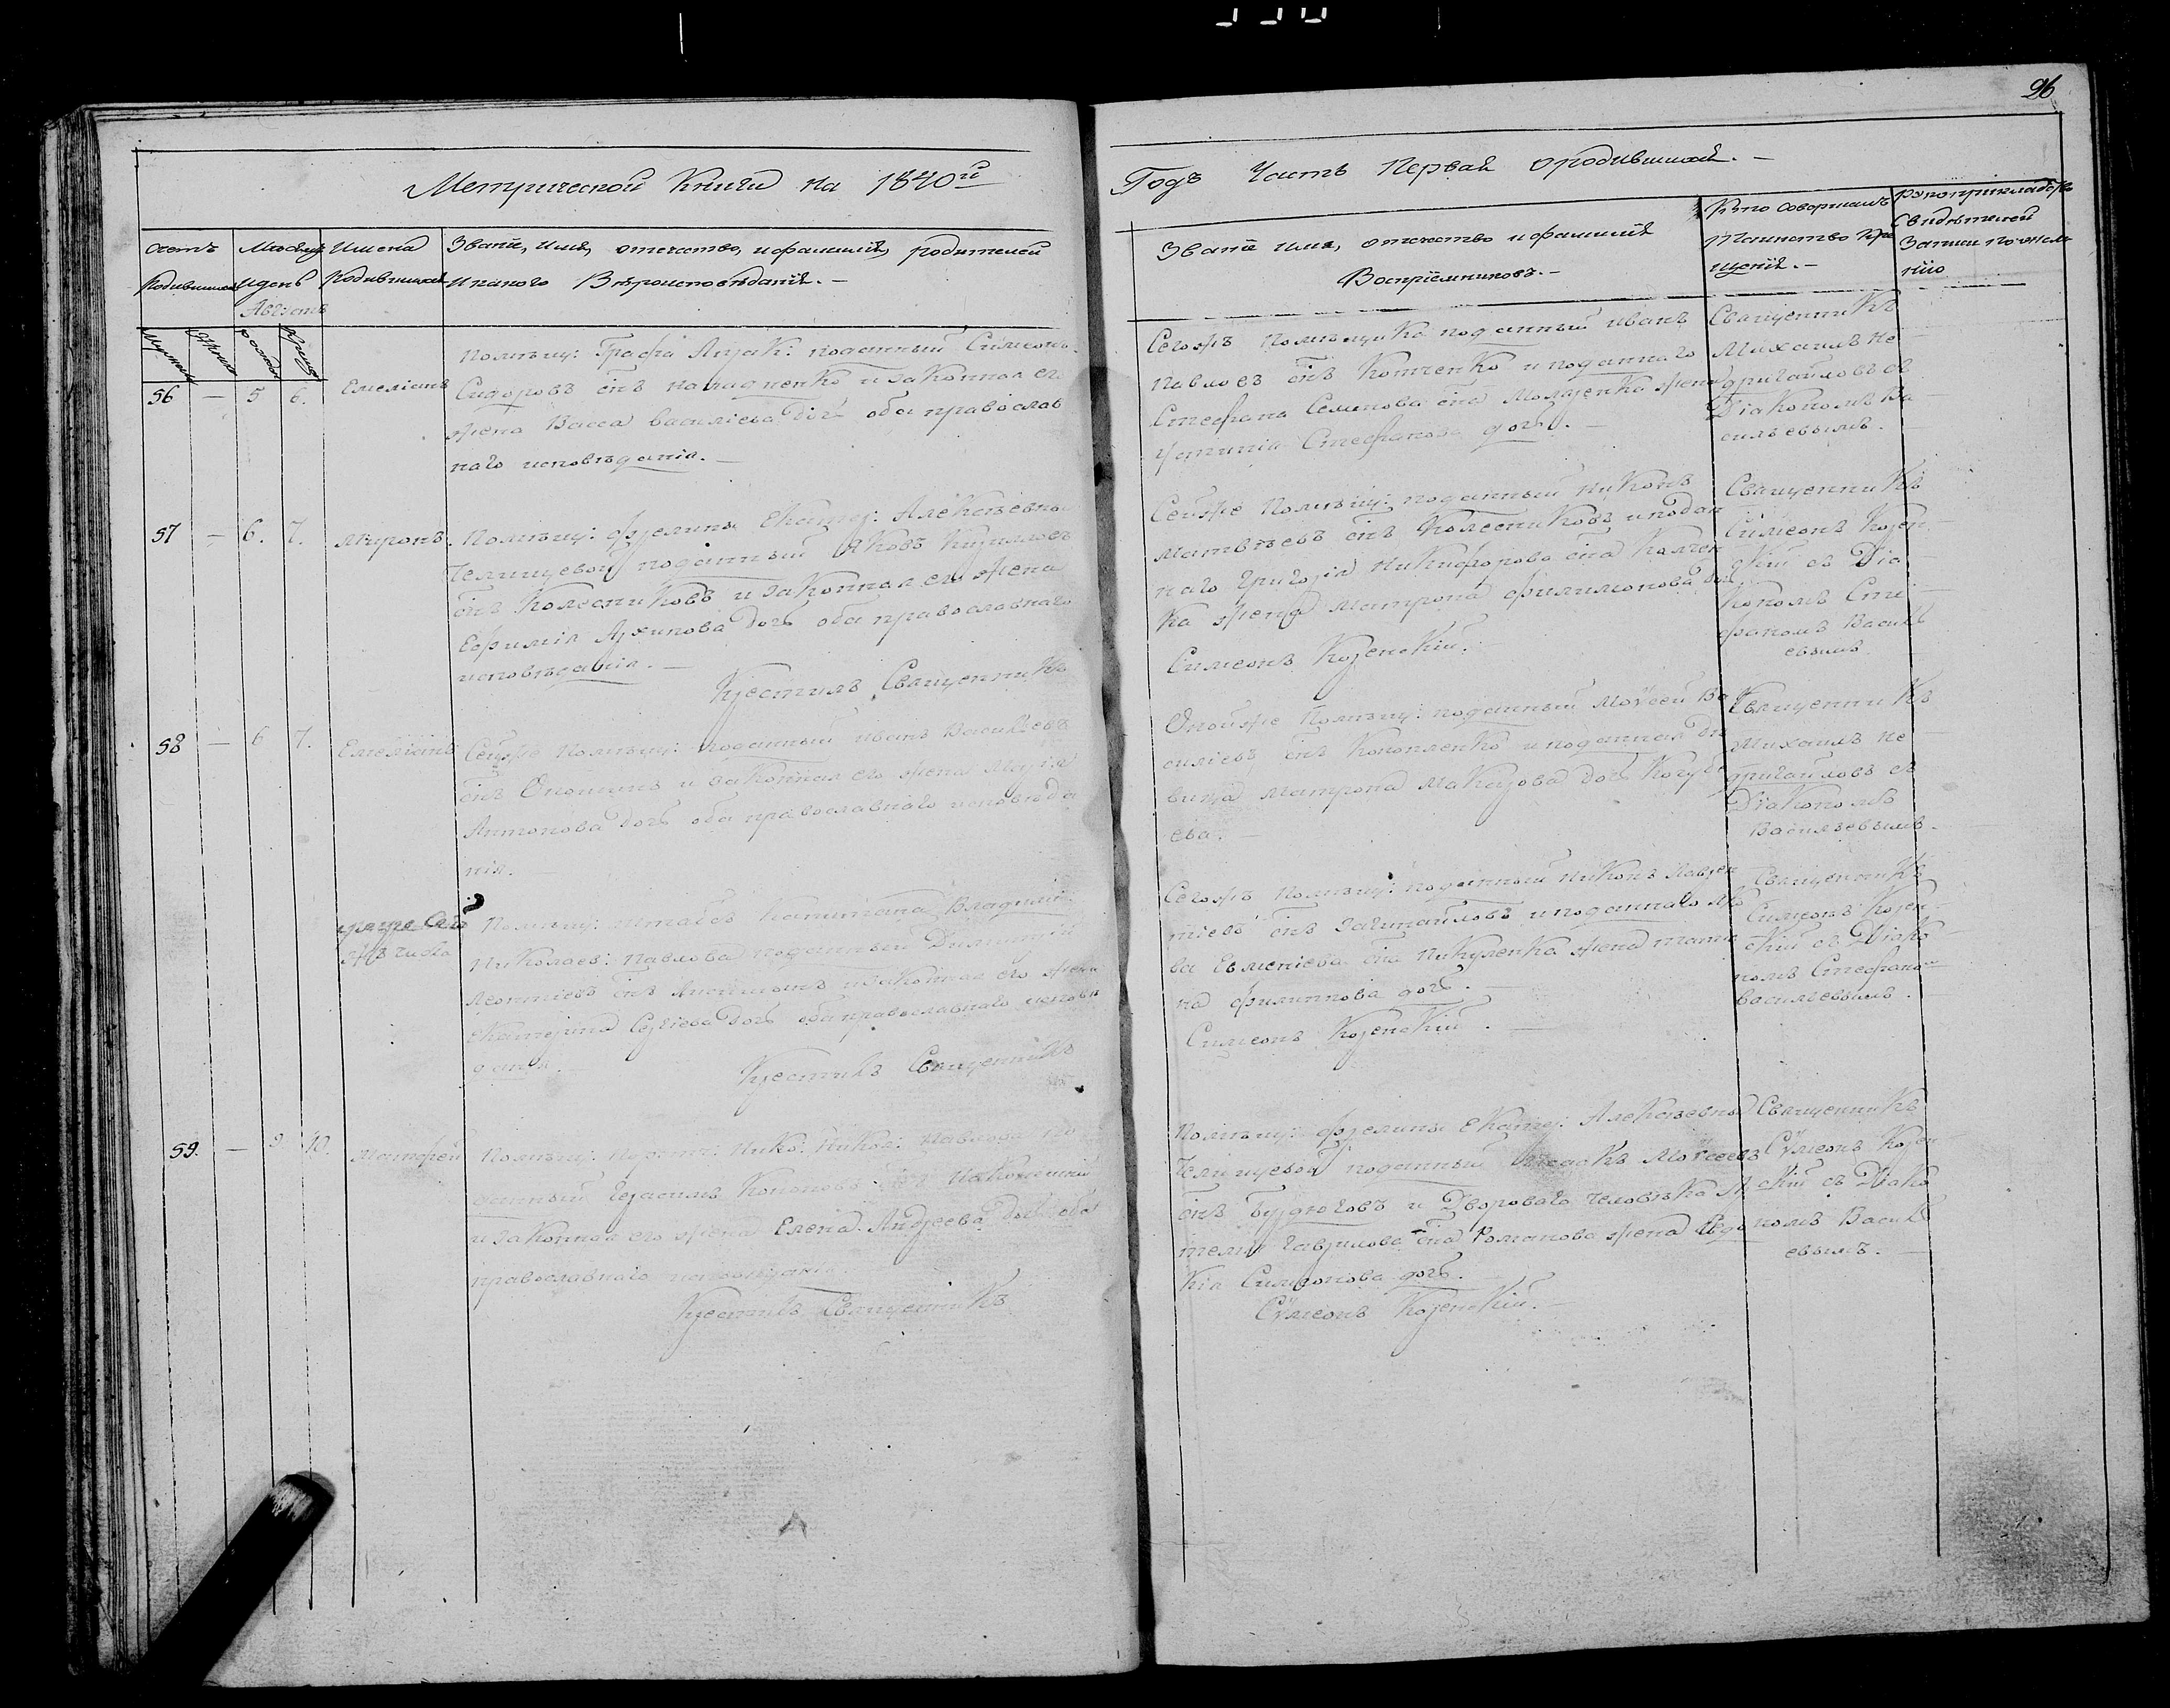 96
Метрической Книги на 1840й
Годъ Часть Первая о родившихся. —
Счетъ родившихся
Месяцъ и день
Августъ
Имена родившихся
Званіе, имя, отечество, и фамилія, родителей
и какого Вѣроисповѣданія. —
Званіе имя, отечество и фамилія
Воспріемниковъ. —
Кто совершалъ
Таинство Кре
щенія. —
Рукоприкладство
Свидѣтелей
Записи по жела
нію
56 — 5 6. Емеліанъ
Помѣщ: Графа поданный Симеонъ
Сидоровъ снъ и законная его
жена Васса Василіева дочь оба православ
наго исповѣданія. —
Сегожъ помѣщика поданный Иванъ
Павловъ снъ Котченко и поданнаго
Стефана Семенова сна жена
Устинія Стефанова дочь. —
Священникъ
Михаилъ Не
дригайловъ съ
Діакономъ Ва
сильевымъ.
57 — 6. 7. Миронъ.
Помѣщ: Фрелины Екатер: Алексѣевны
Челищевой поданный Яковъ Кириловъ
снъ Колесниковъ и законная его жена
Ефимія Архипова дочь оба православнаго
исповѣданія. —
Крестилъ Священникъ
Сейже Помѣщ: поданный Никонъ
Матвѣевъ снъ Колесниковъ и подан
наго Григорія Никифорова сна
ка жена Матрона Филимонова доч.
Симеонъ Козенскій. —
Священникъ
Симеонъ Козен
скій съ Діа
кономъ Сте
фаномъ Василь
евымъ
58 — 6 7. Емеліанъ
Сейже помѣщ: поданный Иванъ Василіевъ
снъ и законная его жена Марія
Антонова дочь оба православнаго исповѣда
нія. —
Онойже Помѣщ: поданный Моѵсей Ва
силіевъ снъ Коноплѣнко и поданная дѣ
вица Матрона Макарова дочь
ева. —
Священникъ
Михаилъ Не
дригайловъ съ
Діакономъ
Васильевымъ.
числа
Помѣщ: Штабсъ Капитана Владимір:
Николаев: Павлова поданный Димитрій
Леонтіевъ снъ и законная его жена
Екатерина Сергіева дочь оба православнаго исповѣ
данія. —
Крестилъ Священникъ
Сегожъ Помѣщ: поданный Никонъ Лаврен
тіевъ снъ и поданнаго
ва Евменіева сна Никуленка жена татіа
на Филиппова дочь. —
Симеонъ Козенскій. —
Священникъ
Симеонъ Козен
скій съ Діако
номъ Стефано
Василіевымъ.
59. — 9 10. Матфей
Помѣщ: Нико: Никол: Павлова по
данный Герасимъ Кононовъ снъ
и законная его жена Елена Андреева дочь оба
православнаго исповѣданія
Крестилъ Священникъ
Помѣщ: Фрелины Екатер: Алексѣевны
Челищевой поданный Исаакъ Моѵсеевъ
снъ и Двороваго человѣка А
темія Гаврилова сна Романова жена Евдо
кія Симеонова дочь.
Сѵмеонъ Козенскій. —
Священникъ
Сѵмеонъ Козен
скій съ Діако
номъ Василь
евымъ. —